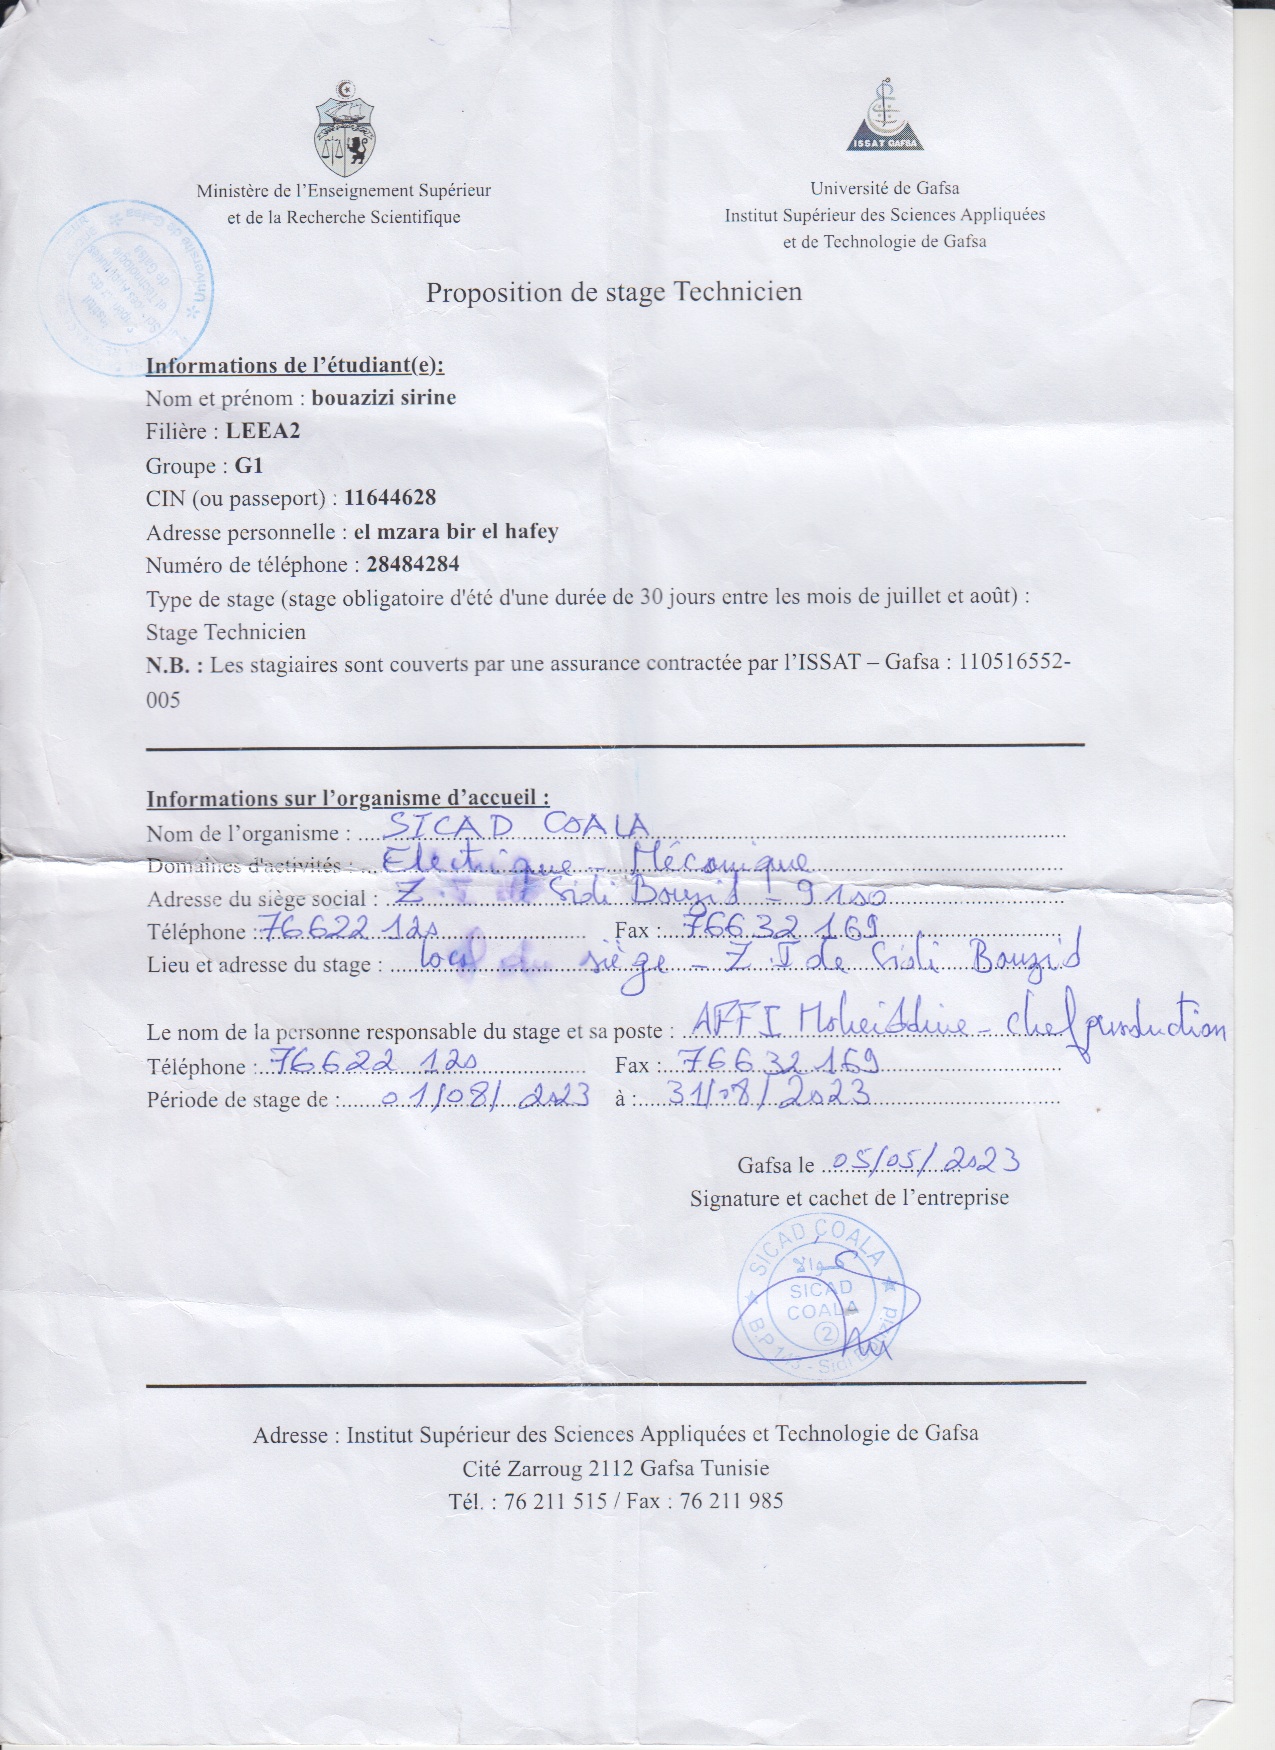 ISSAT GAFSA
Ministère de l'Enseignement Supérieur
et de la Recherche Scientifique
Université de Gafsa
Institut Supérieur des Sciences Appliquées
et de Technologie de Gafsa
Proposition de stage Technicien
Informations de l'étudiant(e):
Nom et prénom : bouazizi sirine
Filière : LEEA2
Groupe : G1
CIN (ou passeport) : 11644628
Adresse personnelle : el mzara bir el hafey
Numéro de téléphone : 28484284
Type de stage (stage obligatoire d'été d'une durée de 30 jours entre les mois de juillet et août) :
Stage Technicien
N.B. : Les stagiaires sont couverts par une assurance contractée par l'ISSAT – Gafsa : 110516552-
005
Informations sur l'organisme d'accueil :
Nom de l'organisme : SICAD COALA
Domaines d'activités : Electrique - Mécanique
Adresse du siège social : Z.I de Sidi Bouzid - 9100
Téléphone : 76622120 Fax : 76632169
Lieu et adresse du stage : local du siège - Z.I de Sidi Bouzid
Le nom de la personne responsable du stage et sa poste : AFFI Moheiddine - chef production
Téléphone : 76622 120 Fax : 76632169
Période de stage de : 01/08/2023 à : 31/08/2023
Gafsa le 05/05/2023
Signature et cachet de l'entreprise
SICAD COALA
كوالا
SICAD
COALA
2
B.P 143 - Sidi Bouzid
Adresse : Institut Supérieur des Sciences Appliquées et Technologie de Gafsa
Cité Zarroug 2112 Gafsa Tunisie
Tél. : 76 211 515 / Fax : 76 211 985